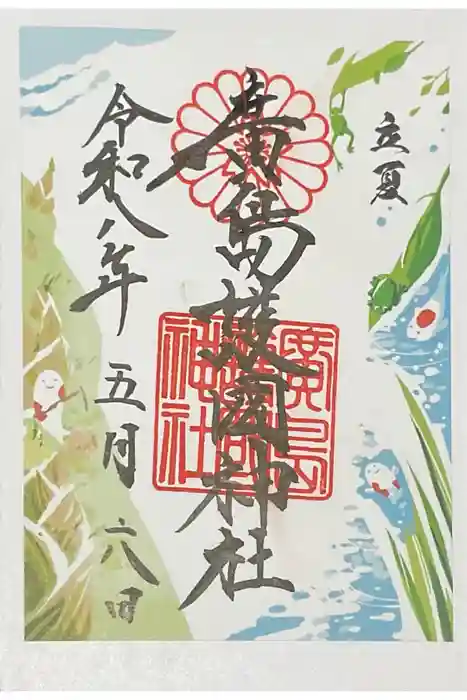 立夏
廣島護國神社
廣島護國神社
令和八年五月六日